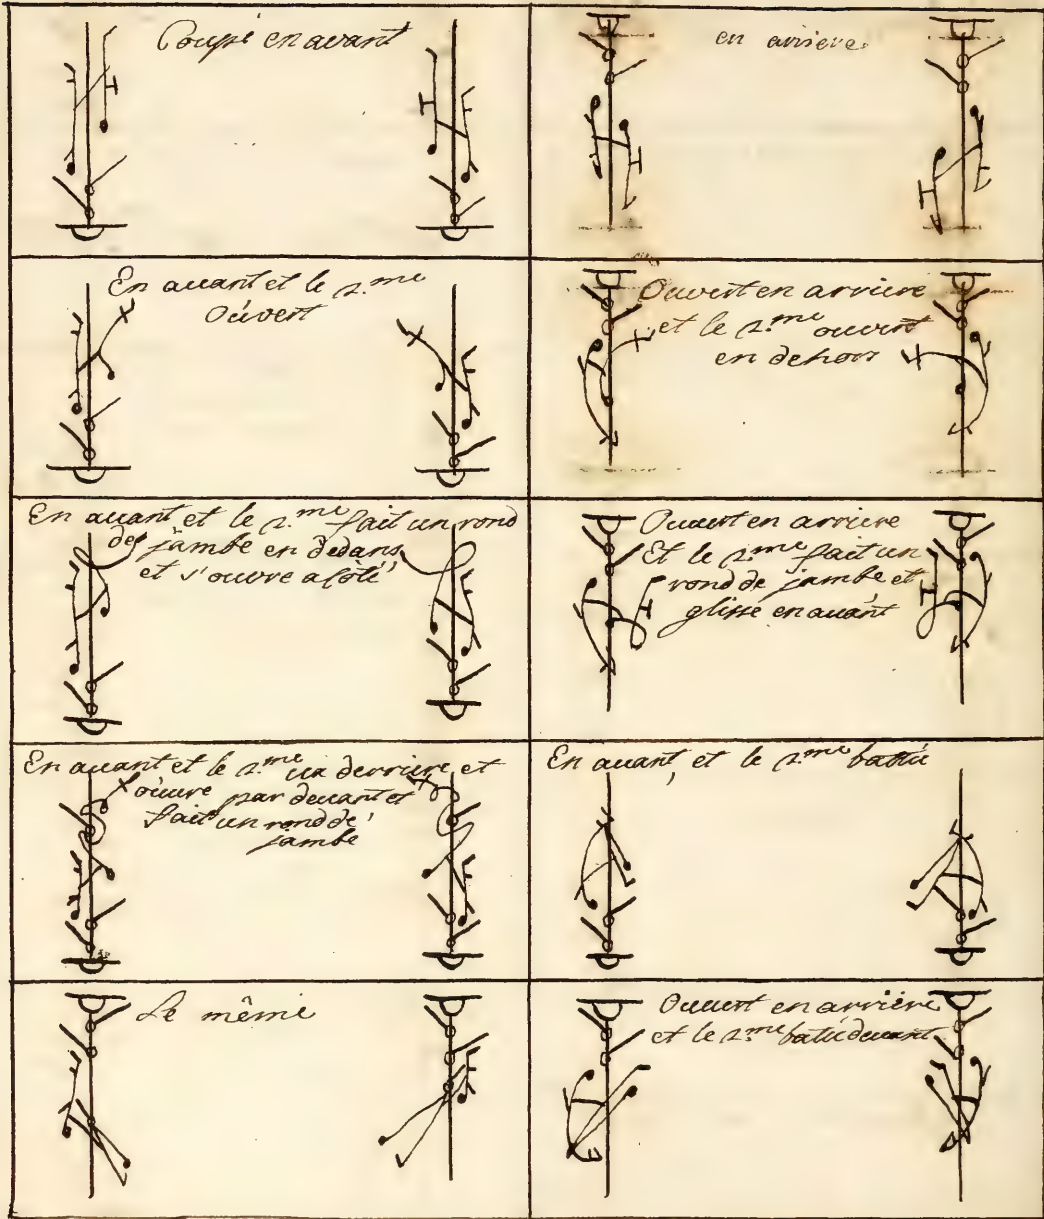 Coupé en avant
en arriere
En auant et le 2.me
Ouvert
Ouvert en arriere
et le 2.me ouvert
en dehors
En auant et le 2.me fait un rond
de jambe en dedans
et s'ouvre a côté
Ouuert en arriere
Et le 2.me fait un
rond de jambe et
glisse en auant
En auant et le 2.me va derriere et
ouvre par deuant et
fait un rond de
jambe
En auant, et le 2.me battu
Le même
Ouuert en arriere
et le 2.me batu deuant